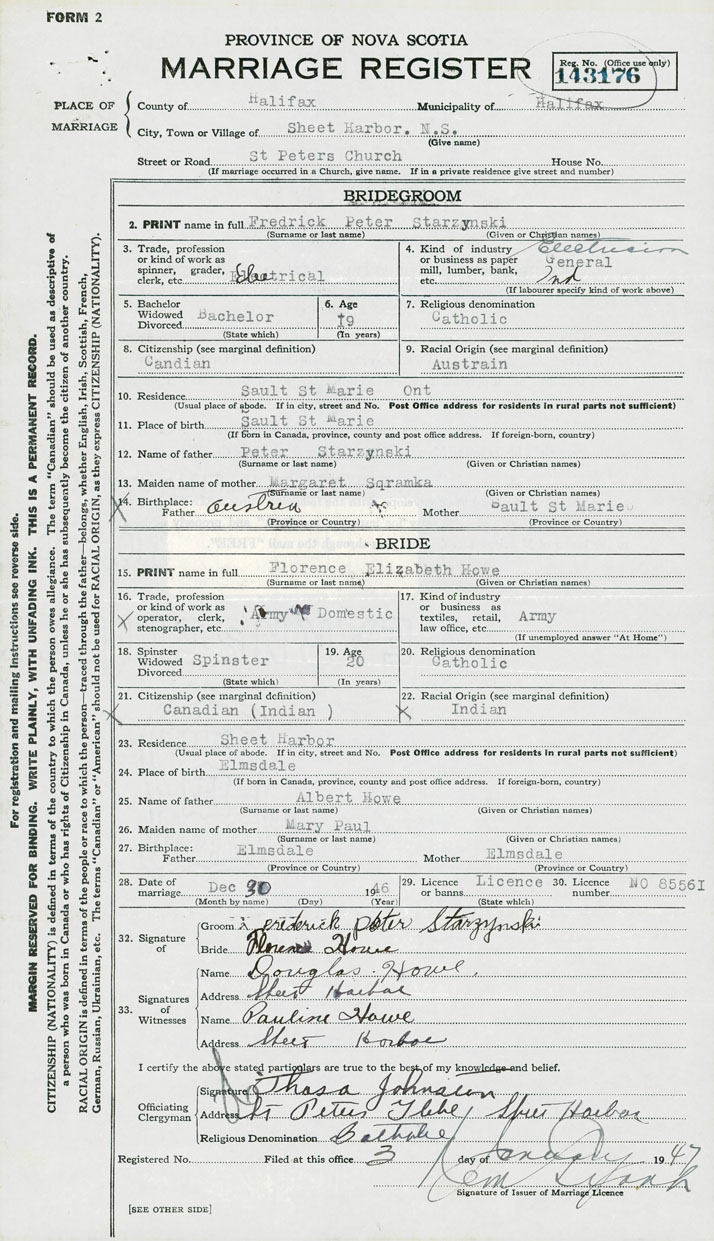 FORM 2
PROVINCE OF NOVA SCOTIA
MARRIAGE REGISTER
Reg. No. (Office use only)
143176
PLACE OF MARRIAGE
County of Halifax Municipality of Halifax
City, Town or Village of Sheet Harbor. N.S.
(Give name)
Street or Road St Peters Church House No.
(If marriage occurred in a Church, give name. If in a private residence give street and number)
BRIDEGROOM
2. PRINT name in full Fredrick Peter Starzynski
(Surname or last name) (Given or Christian names)
3. Trade, profession or kind of work as spinner, grader, clerk, etc. Electrical
4. Kind of industry or business as paper mill, lumber, bank, etc. Electrician General Ind
(If labourer specify kind of work above)
5. Bachelor Widowed Divorced Bachelor
(State which)
6. Age 19
(In years)
7. Religious denomination Catholic
8. Citizenship (see marginal definition) Candian
9. Racial Origin (see marginal definition) Austrain
10. Residence Sault St Marie Ont
(Usual place of abode. If in city, street and No. Post Office address for residents in rural parts not sufficient)
11. Place of birth Sault St Marie
(If born in Canada, province, county and post office address. If foreign-born, country)
12. Name of father Peter Starzynski
(Surname or last name) (Given or Christian names)
13. Maiden name of mother Margaret Sqramka
(Surname or last name) (Given or Christian names)
14. Birthplace: Father Austria Mother Sault St Marie
(Province or Country) (Province or Country)
BRIDE
15. PRINT name in full Florence Elizabeth Howe
(Surname or last name) (Given or Christian names)
16. Trade, profession or kind of work as operator, clerk, stenographer, etc. Army Domestic
17. Kind of industry or business as textiles, retail, law office, etc. Army
(If unemployed answer "At Home")
18. Spinster Widowed Divorced Spinster
(State which)
19. Age 20
(In years)
20. Religious denomination Catholic
21. Citizenship (see marginal definition) Canadian (Indian )
22. Racial Origin (see marginal definition) Indian
23. Residence Sheet Harbor
(Usual place of abode. If in city, street and No. Post Office address for residents in rural parts not sufficient)
24. Place of birth Elmsdale
(If born in Canada, province, county and post office address. If foreign-born, country)
25. Name of father Albert Howe
(Surname or last name) (Given or Christian names)
26. Maiden name of mother Mary Paul
(Surname or last name) (Given or Christian names)
27. Birthplace: Father Elmsdale Mother Elmsdale
(Province or Country) (Province or Country)
28. Date of marriage Dec 30 1946
(Month by name) (Day) (Year)
29. Licence or banns Licence
(State which)
30. Licence number NO 85561
32. Signature of
Groom Frederick Peter Starzynski
Bride Florence Howe
33. Signatures of Witnesses
Name Douglas Howe.
Address Sheet Harbor
Name Pauline Howe
Address Sheet Harbor
I certify the above stated particulars are true to the best of my knowledge and belief.
Officiating Clergyman
Signature Thos a Johnston
Address St Peters Glebe Sheet Harbor
Religious Denomination Catholic
Registered No. Filed at this office 3 day of January 1947
Signature of Issuer of Marriage Licence
[SEE OTHER SIDE]
For registration and mailing instructions see reverse side.
MARGIN RESERVED FOR BINDING. WRITE PLAINLY, WITH UNFADING INK. THIS IS A PERMANENT RECORD.
CITIZENSHIP (NATIONALITY) is defined in terms of the country to which the person owes allegiance. The term "Canadian" should be used as descriptive of
a person who was born in Canada or who has rights of Citizenship in Canada, unless he or she has subsequently become the citizen of another country.
RACIAL ORIGIN is defined in terms of the people or race to which the person—traced through the father—belongs, whether English, Irish, Scottish, French,
German, Russian, Ukrainian, etc. The terms "Canadian" or "American" should not be used for RACIAL ORIGIN, as they express CITIZENSHIP (NATIONALITY).